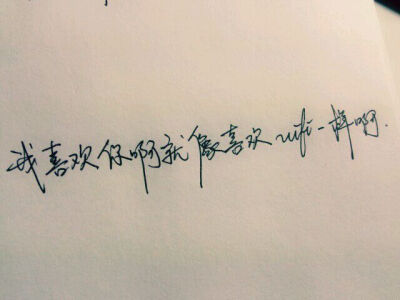 我喜欢你啊就像喜欢wifi一样啊.